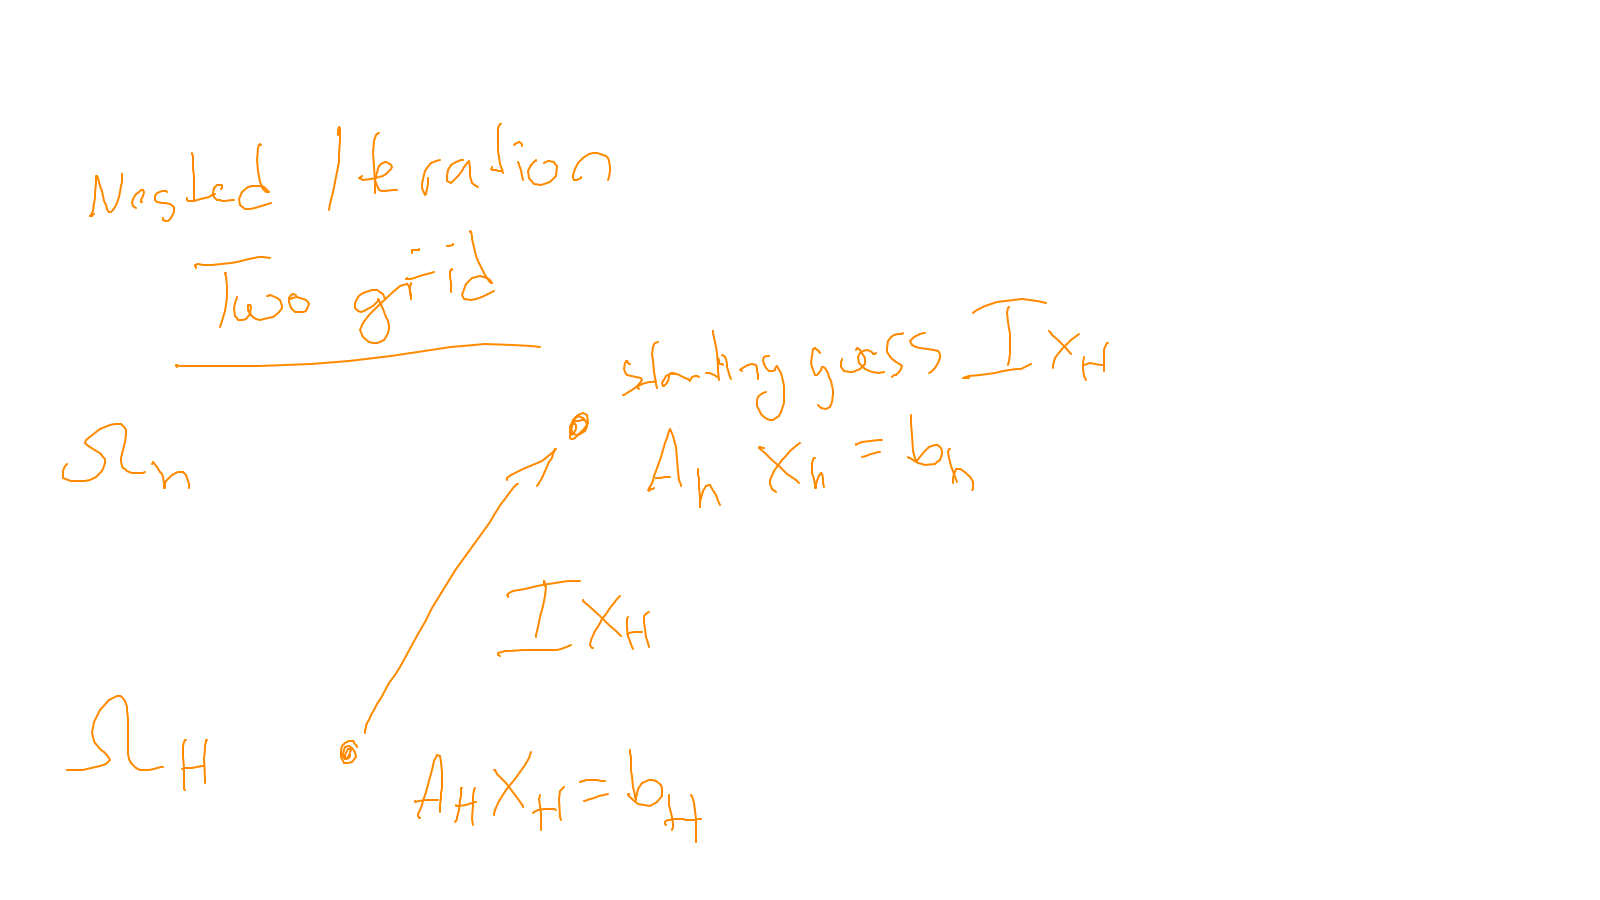 Nested Iteration
Two grid
starting guess I x_H
Ω_h
A_h x_h = b_h
I x_H
Ω_H
A_H x_H = b_H